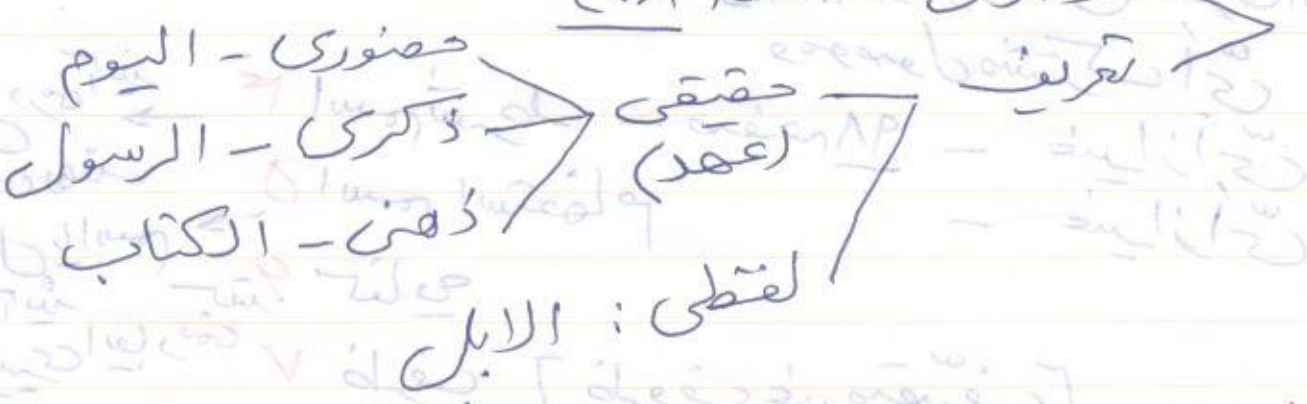 تعریف
حقیقی
(عهد)
حضوری - الیوم
ذکری - الرسول
ذهنی - الکتاب
لفظی : الابل